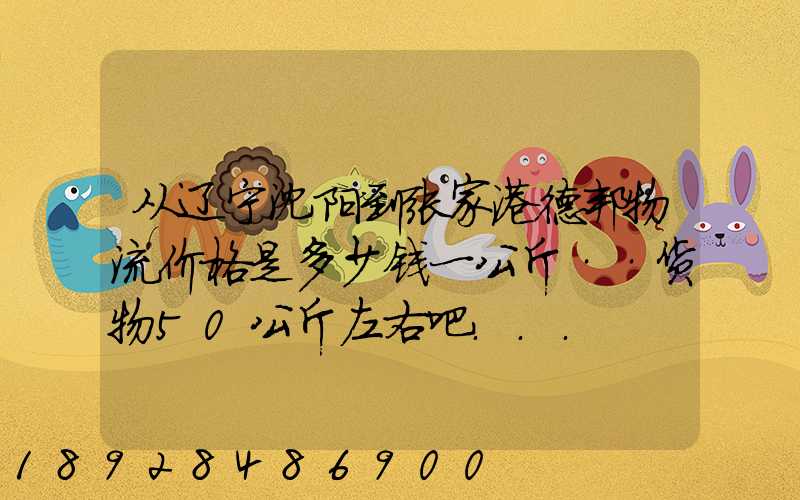 ENGLISH
从辽宁沈阳到张家港德邦物
流价格是多少钱一公斤··货
物50公斤左右吧...
18928486900